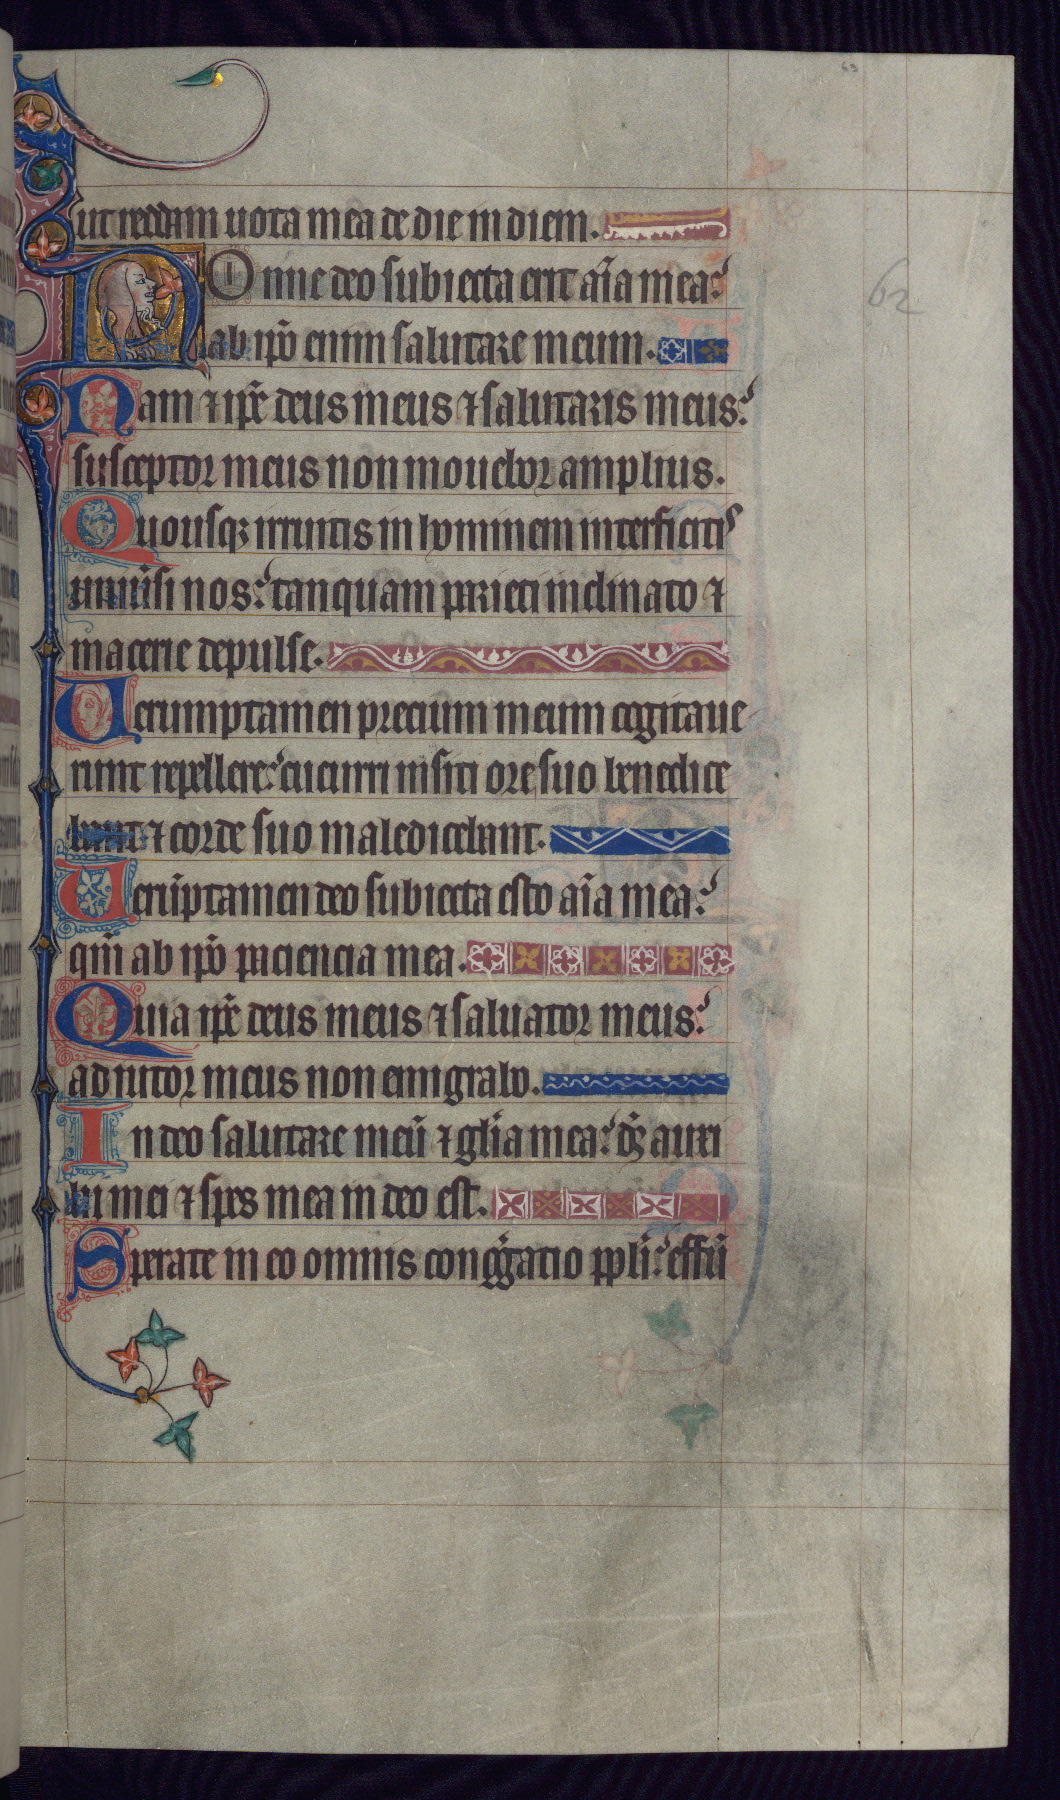 63
ut reddam uota mea de die in diem.
NOnne deo subiecta erit aĩa mea?
ab ip̃o enim salutare meum.
62
Nam ⁊ ip̃e deus meus ⁊ salutaris meus?
susceptor meus non mouebor amplius.
Quousqꝫ irruitis in hominem interficitis
uniũsi nos? tanquam parieti inclinato ⁊
macerie depulse.
Uerumptamen precium meum cogitaue
runt repellere? cucurri in siti ore suo benedice
bant ⁊ corde suo maledicebant.
Uerũptamen deo subiecta esto aĩa mea?
qm̃ ab ip̃o paciencia mea.
Quia ip̃e deus meus ⁊ saluator meus?
adiutor meus non emigrabo.
In deo salutare meũ ⁊ gl̃ia mea? ds̃ auxi
lii mei ⁊ spes mea in deo est.
Sperate in eo omnis cong̃gatio ppl̃i? effũ